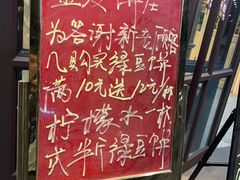 为答谢新老顾客
凡购买绿豆饼
满10元送10元
柠檬水一杯
式半斤绿豆饼